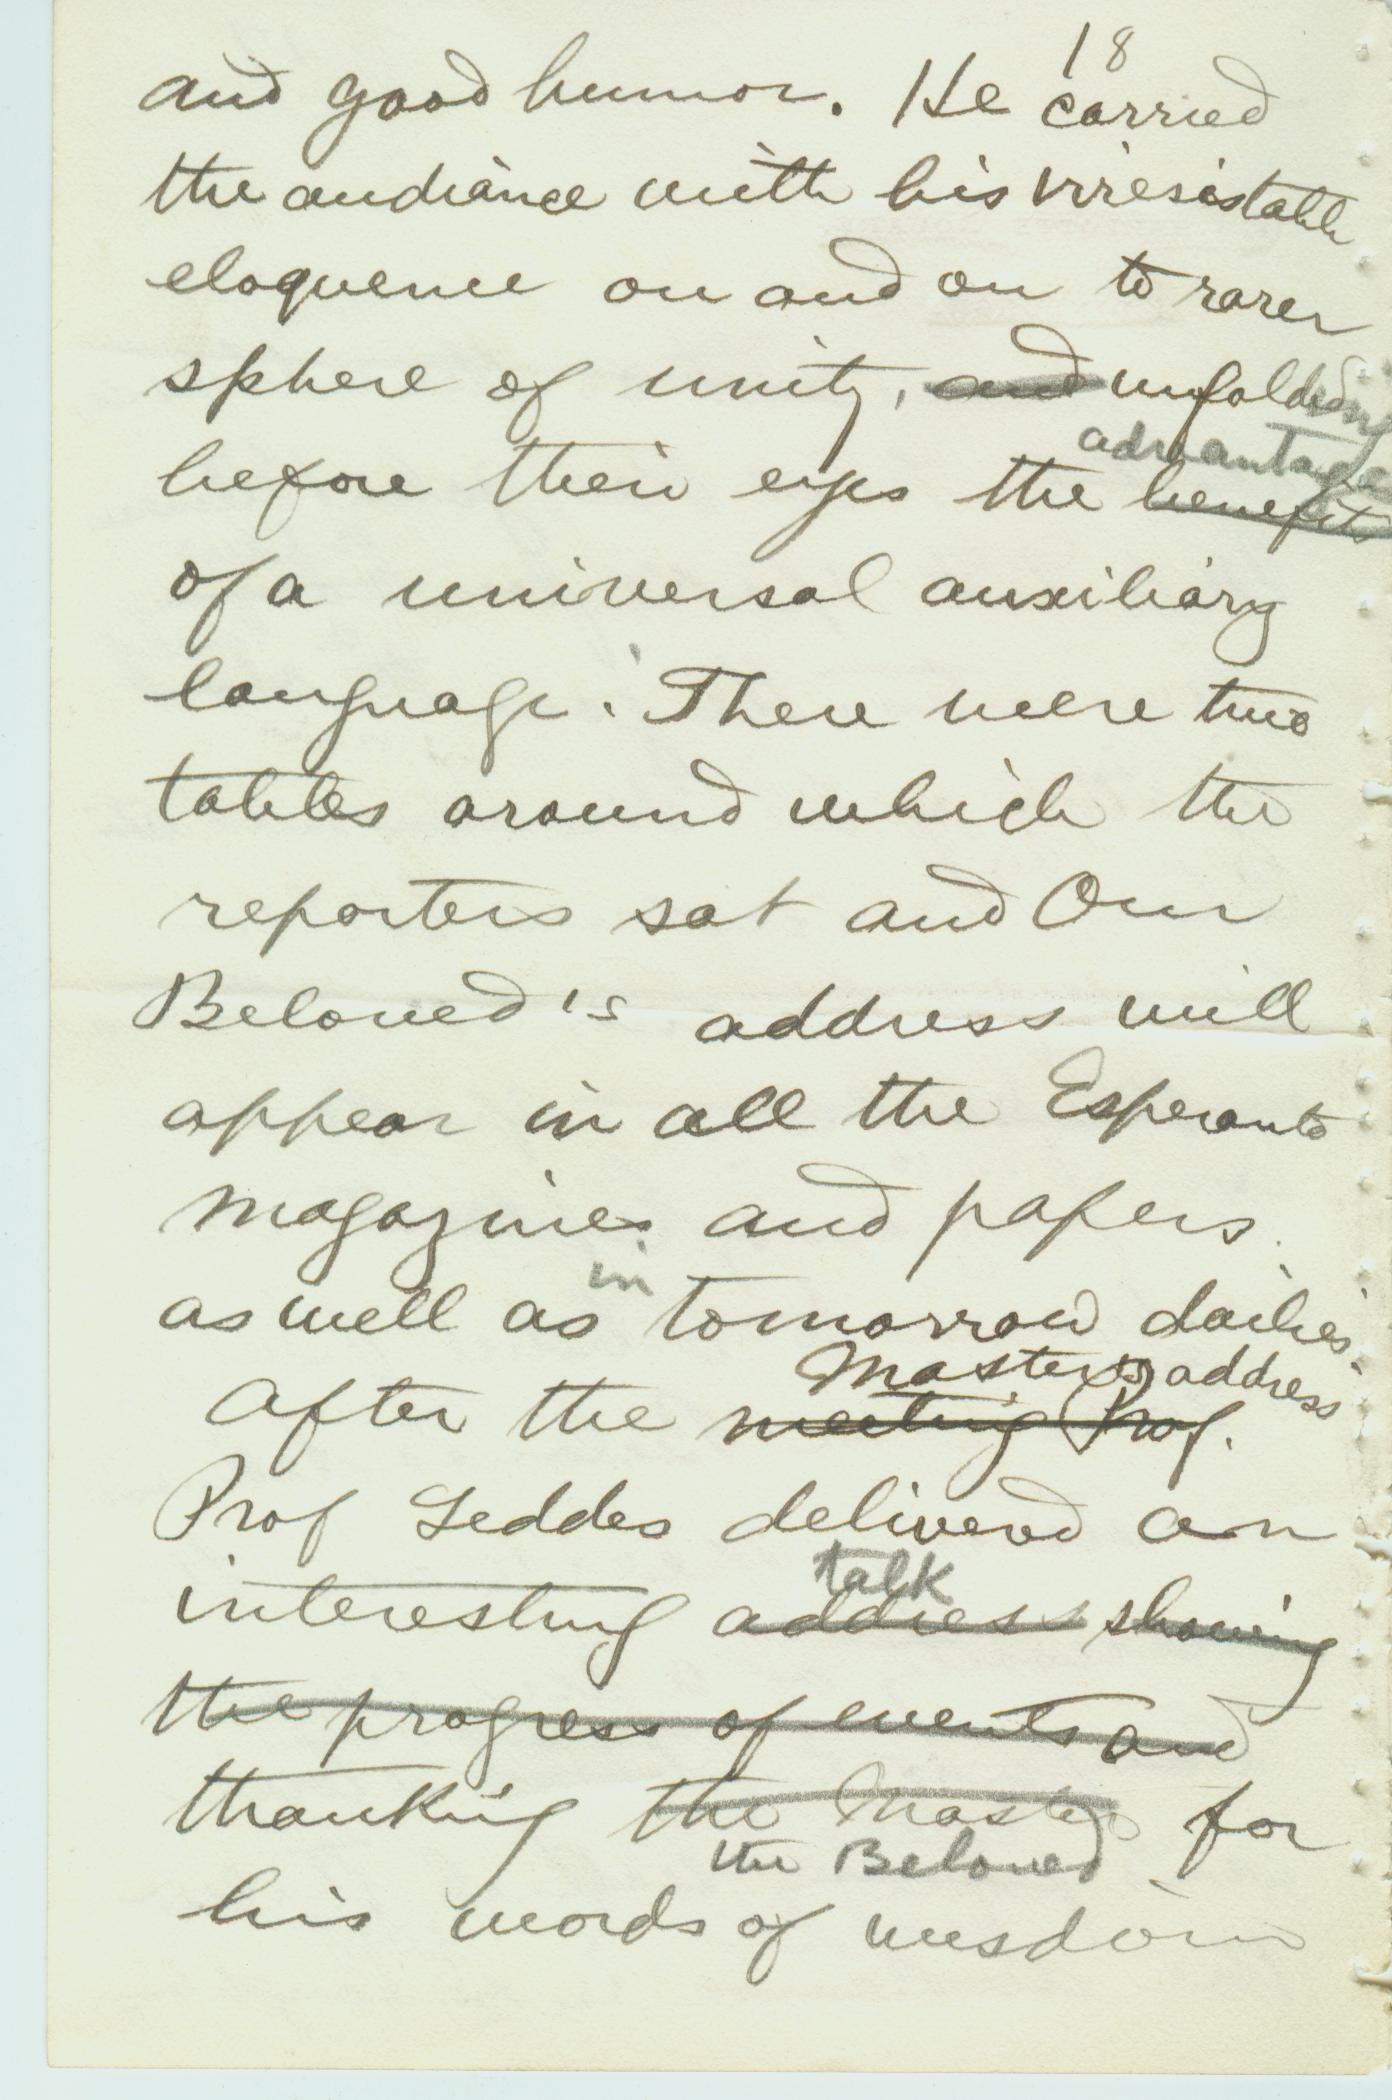 18
and good humor. He carried
the audiance with his irresistable
eloquence on and on to rarer
sphere of unity, and unfolding
advantages
before their eyes the benefits
of a universal auxiliary
language. There were two
tables around which the
reporters sat and Our
Beloved's address will
appear in all the Esperanto
magazines and papers
in
as well as tomorrow dailies.
Master's address
After the meeting Prof.
Prof Geddes delivered an
talk
interesting address showing
the progress of events and
thanking the Master for
the Beloved
his words of wisdom